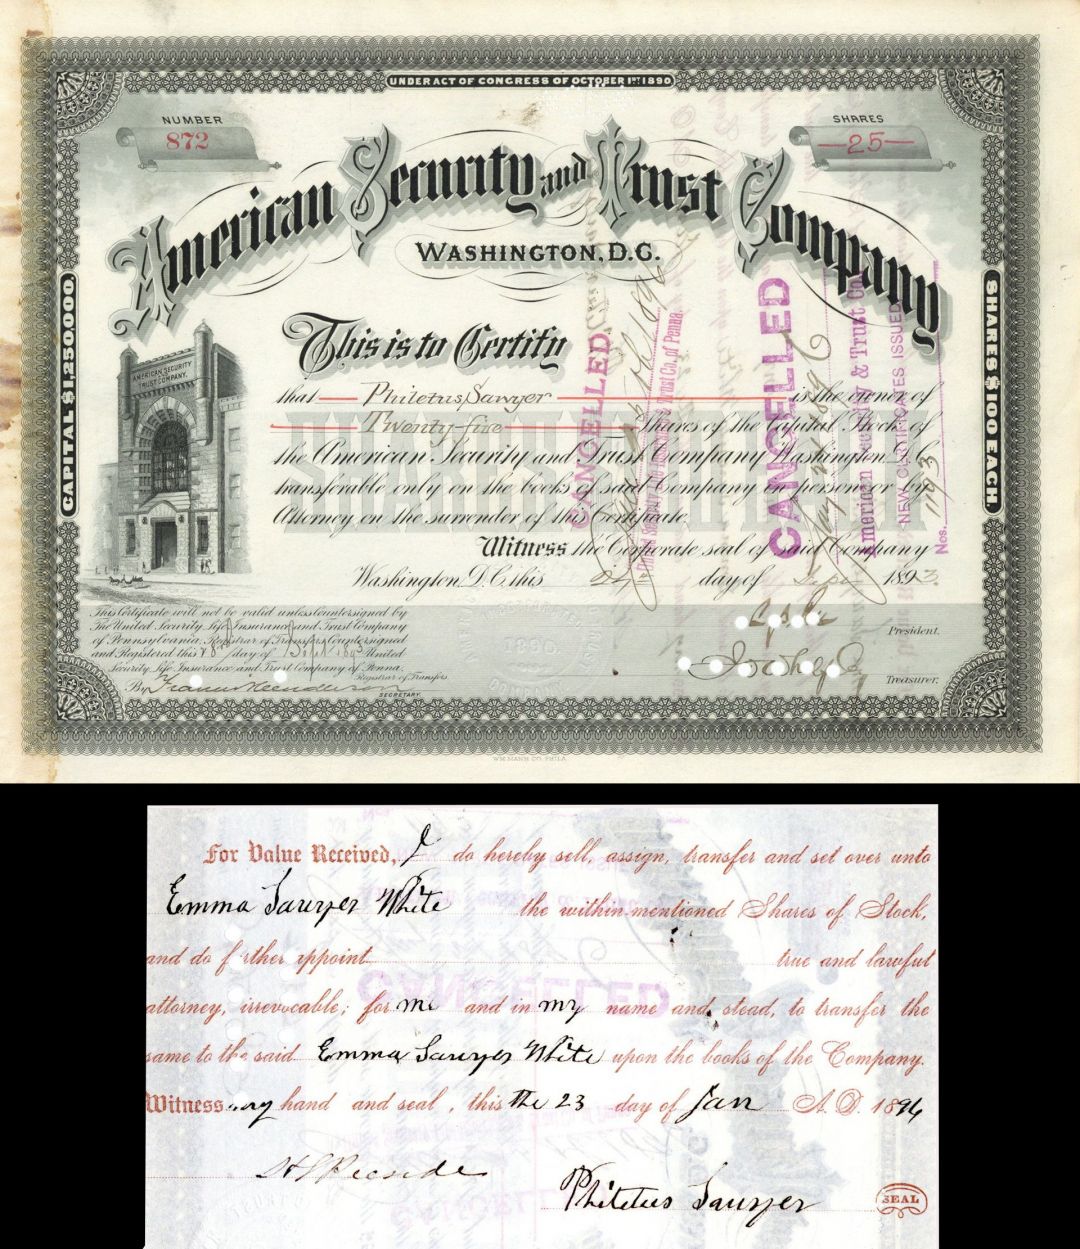 UNDER ACT OF CONGRESS OF OCTOBER 1ST 1890
NUMBER
872
SHARES
25
American Security and Trust Company
WASHINGTON, D.C.
CAPITAL $1,250,000
SHARES $100 EACH.
This is to Certify
AMERICAN SECURITY AND TRUST COMPANY.
that Philetus Sawyer is the owner of
Twenty-five Shares of the Capital Stock of
the American Security and Trust Company Washington D.C.
transferable only on the books of said Company in person or by
Attorney on the surrender of this Certificate.
Witness the Corporate seal of said Company
Washington, D.C. this day of Sept 1893.
CANCELLED
CANCELLED
1896
United Security Life Insurance & Trust Co. of Penna.
May 1896
American Security & Trust Co.
NEW CERTIFICATES ISSUED
Nos. 1193
This Certificate will not be valid unless countersigned by
The United Security Life Insurance and Trust Company
of Pennsylvania, Registrar of Transfers, Countersigned
and Registered this day of Sept 1893 United
Security Life Insurance and Trust Company of Penna.
Registrar of Transfers.
By
SECRETARY.
1890
President.
Treasurer.
WM. MANN CO. PHILA.
For Value Received, I do hereby sell, assign, transfer and set over unto
Emma Sawyer White the within mentioned Shares of Stock,
and do further appoint true and lawful
attorney, irrevocable; for me and in my name and stead, to transfer the
same to the said Emma Sawyer White upon the books of the Company.
Witness my hand and seal, this the 23 day of Jan A.D. 1896
Philetus Sawyer
SEAL
CANCELLED